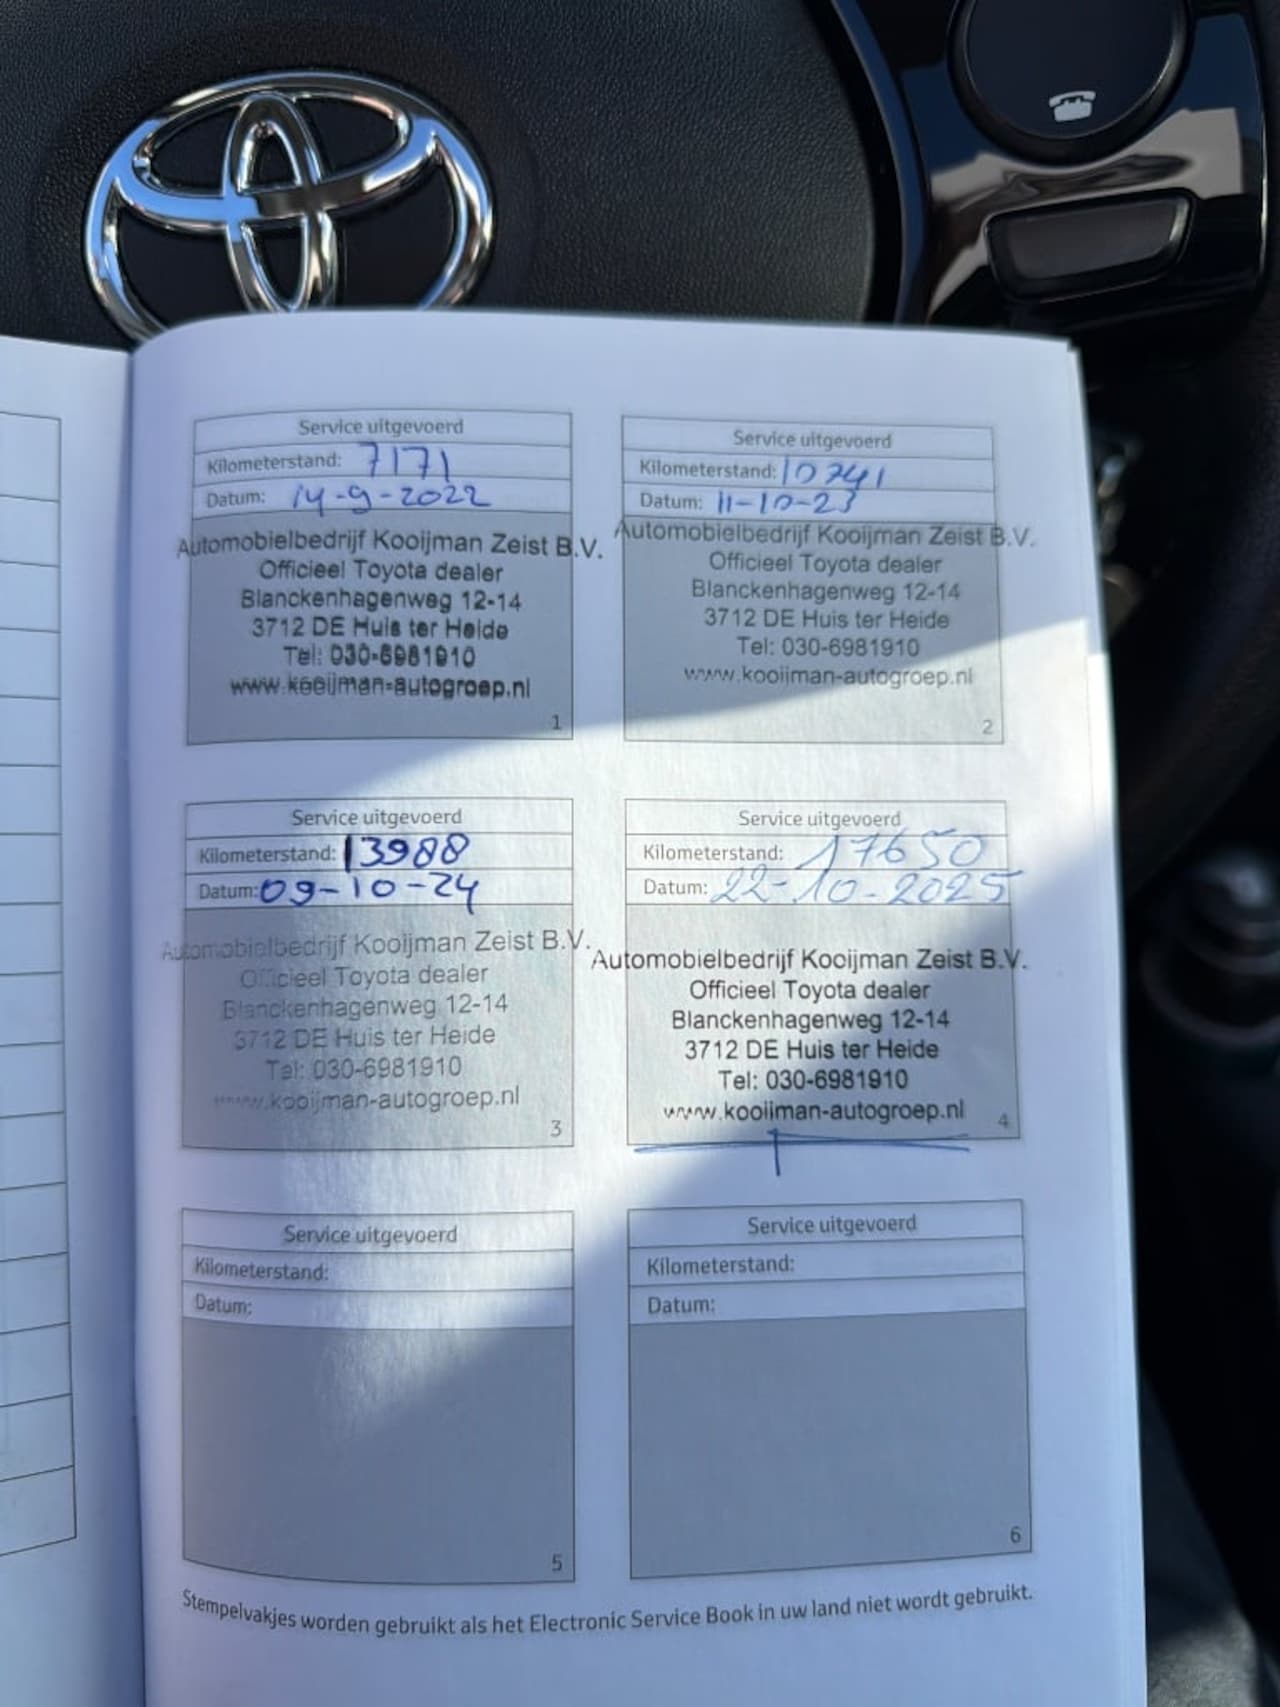 Service uitgevoerd
Kilometerstand: 7171
Datum: 14-9-2022
Automobielbedrijf Kooijman Zeist B.V.
Officieel Toyota dealer
Blanckenhagenweg 12-14
3712 DE Huis ter Heide
Tel: 030-6981910
www.kooijman-autogroep.nl
1
Service uitgevoerd
Kilometerstand: 10741
Datum: 11-10-23
Automobielbedrijf Kooijman Zeist B.V.
Officieel Toyota dealer
Blanckenhagenweg 12-14
3712 DE Huis ter Heide
Tel: 030-6981910
www.kooijman-autogroep.nl
2
Service uitgevoerd
Kilometerstand: 13988
Datum: 09-10-24
Automobielbedrijf Kooijman Zeist B.V.
Officieel Toyota dealer
Blanckenhagenweg 12-14
3712 DE Huis ter Heide
Tel: 030-6981910
www.kooijman-autogroep.nl
3
Service uitgevoerd
Kilometerstand: 17650
Datum: 22-10-2025
Automobielbedrijf Kooijman Zeist B.V.
Officieel Toyota dealer
Blanckenhagenweg 12-14
3712 DE Huis ter Heide
Tel: 030-6981910
www.kooijman-autogroep.nl
4
Service uitgevoerd
Kilometerstand:
Datum:
5
Service uitgevoerd
Kilometerstand:
Datum:
6
Stempelvakjes worden gebruikt als het Electronic Service Book in uw land niet wordt gebruikt.